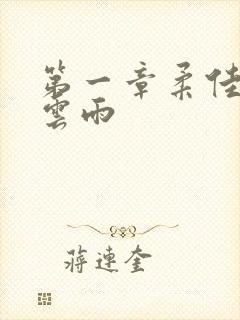 第一章柔佳
雲雨
蔣連奎